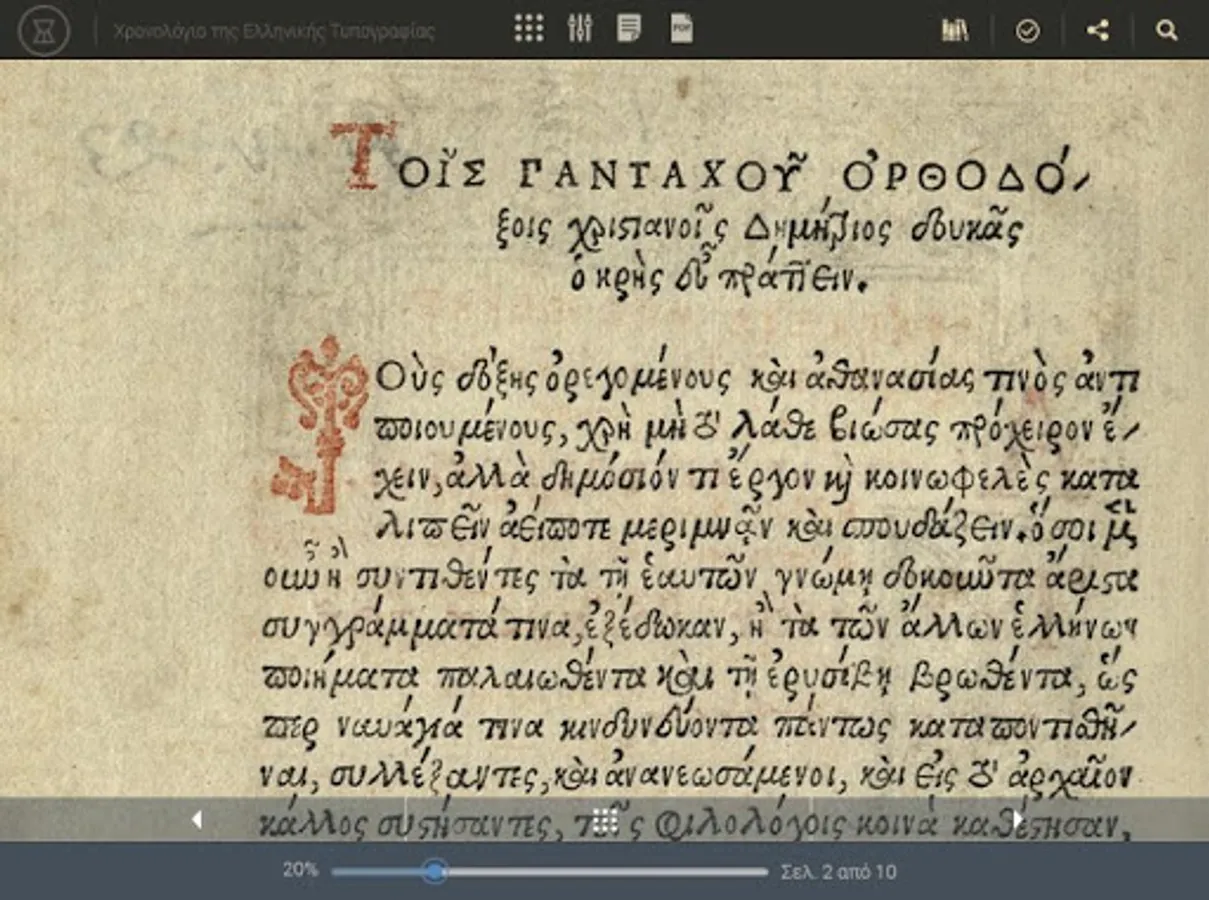 Χρονολόγιο της Ελληνικής Τυπογραφίας
PDF
ΤΟῖΣ ΓΑΝΤΑΧΟῦ ὈΡΘΟΔΌ-
ξοις χριστιανοῖς Δημήτριος δουκᾶς
ὁ κρὴς εὖ πράττειν.
Οὺς δόξης ὀρεγομένους καὶ ἀθανασίας τινὸς ἀντι
ποιουμένους, χρὴ μὴ τὸ λάθε βιώσας πρόχειρον ἔ-
χειν, ἀλλὰ δημόσιόν τι ἔργον καὶ κοινωφελὲς κατα
λιπεῖν ἀείποτε μεριμνᾷν καὶ σπουδάζειν. ὅσοι μὲν
οὖν ἢ συντιθέντες τὰ τῇ ἑαυτῶν γνώμῃ δοκοῦντα ἄριστα
συγγράμματά τινα, ἐξέδωκαν, ἢ τὰ τῶν ἄλλων ἑλλήνων
ποιήματα παλαιωθέντα καὶ τῇ ἐρυσίβῃ βρωθέντα, ὥς
περ ναυάγιά τινα κινδυνεύοντα πάντως καταποντισθῆ-
ναι, συλλέξαντες, καὶ ἀνανεωσάμενοι, καὶ εἰς τὸ ἀρχαῖον
κάλλος συστήσαντες, τοῖς φιλολόγοις κοινὰ καθέστησαν,
20%
Σελ. 2 από 10